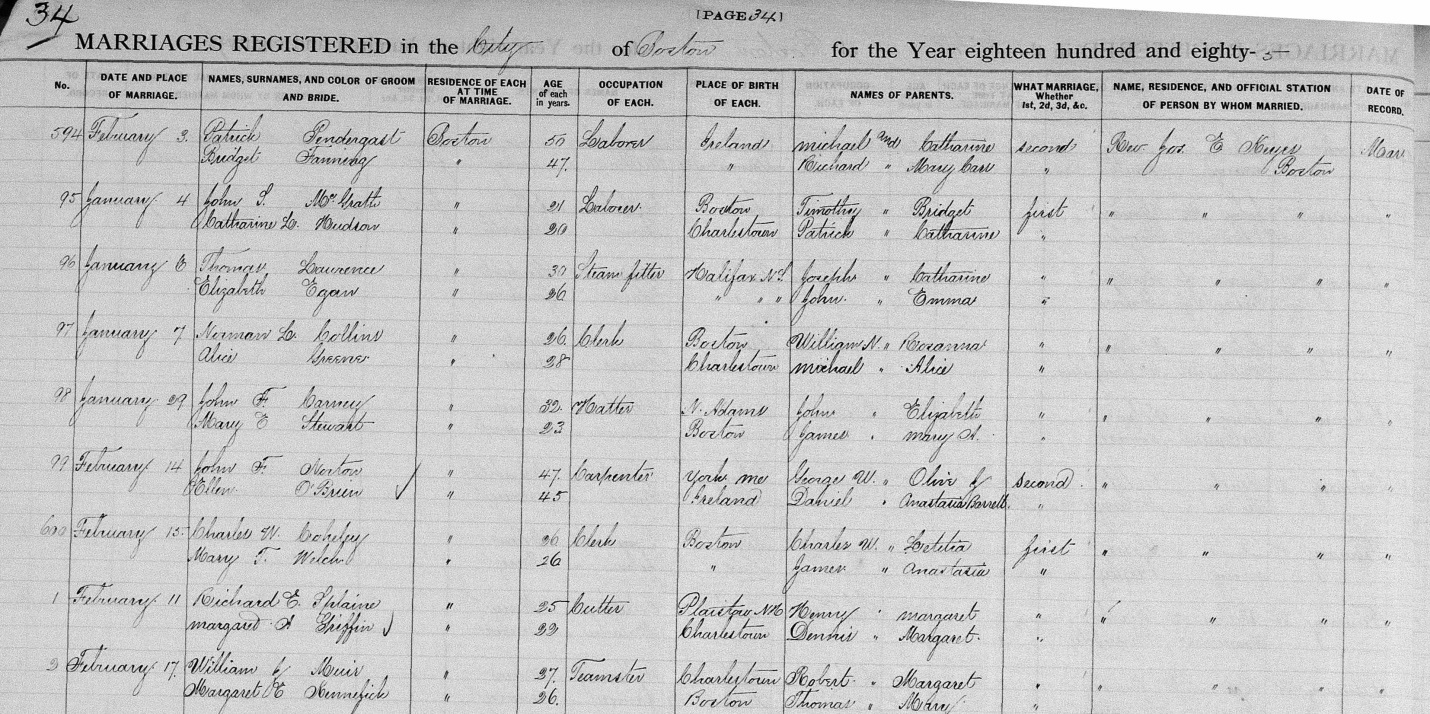 34
[PAGE 34]
MARRIAGES REGISTERED in the City of Boston for the Year eighteen hundred and eighty-5
No. DATE AND PLACE OF MARRIAGE. NAMES, SURNAMES, AND COLOR OF GROOM AND BRIDE. RESIDENCE OF EACH AT TIME OF MARRIAGE. AGE of each in years. OCCUPATION OF EACH. PLACE OF BIRTH OF EACH. NAMES OF PARENTS. WHAT MARRIAGE, Whether 1st, 2d, 3d, &c. NAME, RESIDENCE, AND OFFICIAL STATION OF PERSON BY WHOM MARRIED. DATE OF RECORD.
594 February 3. Patrick Pendergast Boston 50 Laborer Ireland michael and Catharine second Rev Jos. E Mar
Bridget Fanning " 47. " Richard " Mary Carr " Boston
95 January 4 John S. McGrath " 21 Laborer. Boston Timothy " Bridget first " " " "
Catharine L. Hudson " 20 Charlestown Patrick " Catharine "
96 January 6 Thomas Laurence " 30 Steam fitter Halifax N.S. Joseph " Catharine " " " " "
Elizabeth Egan " 26 " " " John. " Emma "
97 January 7 Norman L. Collins " 26 Clerk Boston William N. " Rosanna " " " " "
Alice Greene " 28 Charlestown michael " Alice "
98 January 29 John F. Carney " 32. Hatter N. Adams John " Elizabeth " " " " "
Mary E Stewart " 23 Boston James " mary A. "
99 February 14 John F. Norton " 47. Carpenter York me George W. " Olive J second " " " "
Ellen O'Brien ✓ " 45 Ireland Daniel " Anastasia Barrett. "
600 February 15 Charles W. " 26 Clerk Boston Charles W. " Letitia first " " " "
Mary T. Welch " 26 " James " Anastasia "
1 February 11 Richard E. Splaine " 25 Cutter Plaistow NH Henry " margaret " " " " "
margaret A Griffin ✓ " 22 Charlestown Dennis " Margaret. "
2 February 17. William J Muir " 27. Teamster Charlestown Robert " Margaret " " " " "
Margaret E Kennefick " 26. Boston Thomas " Mary "